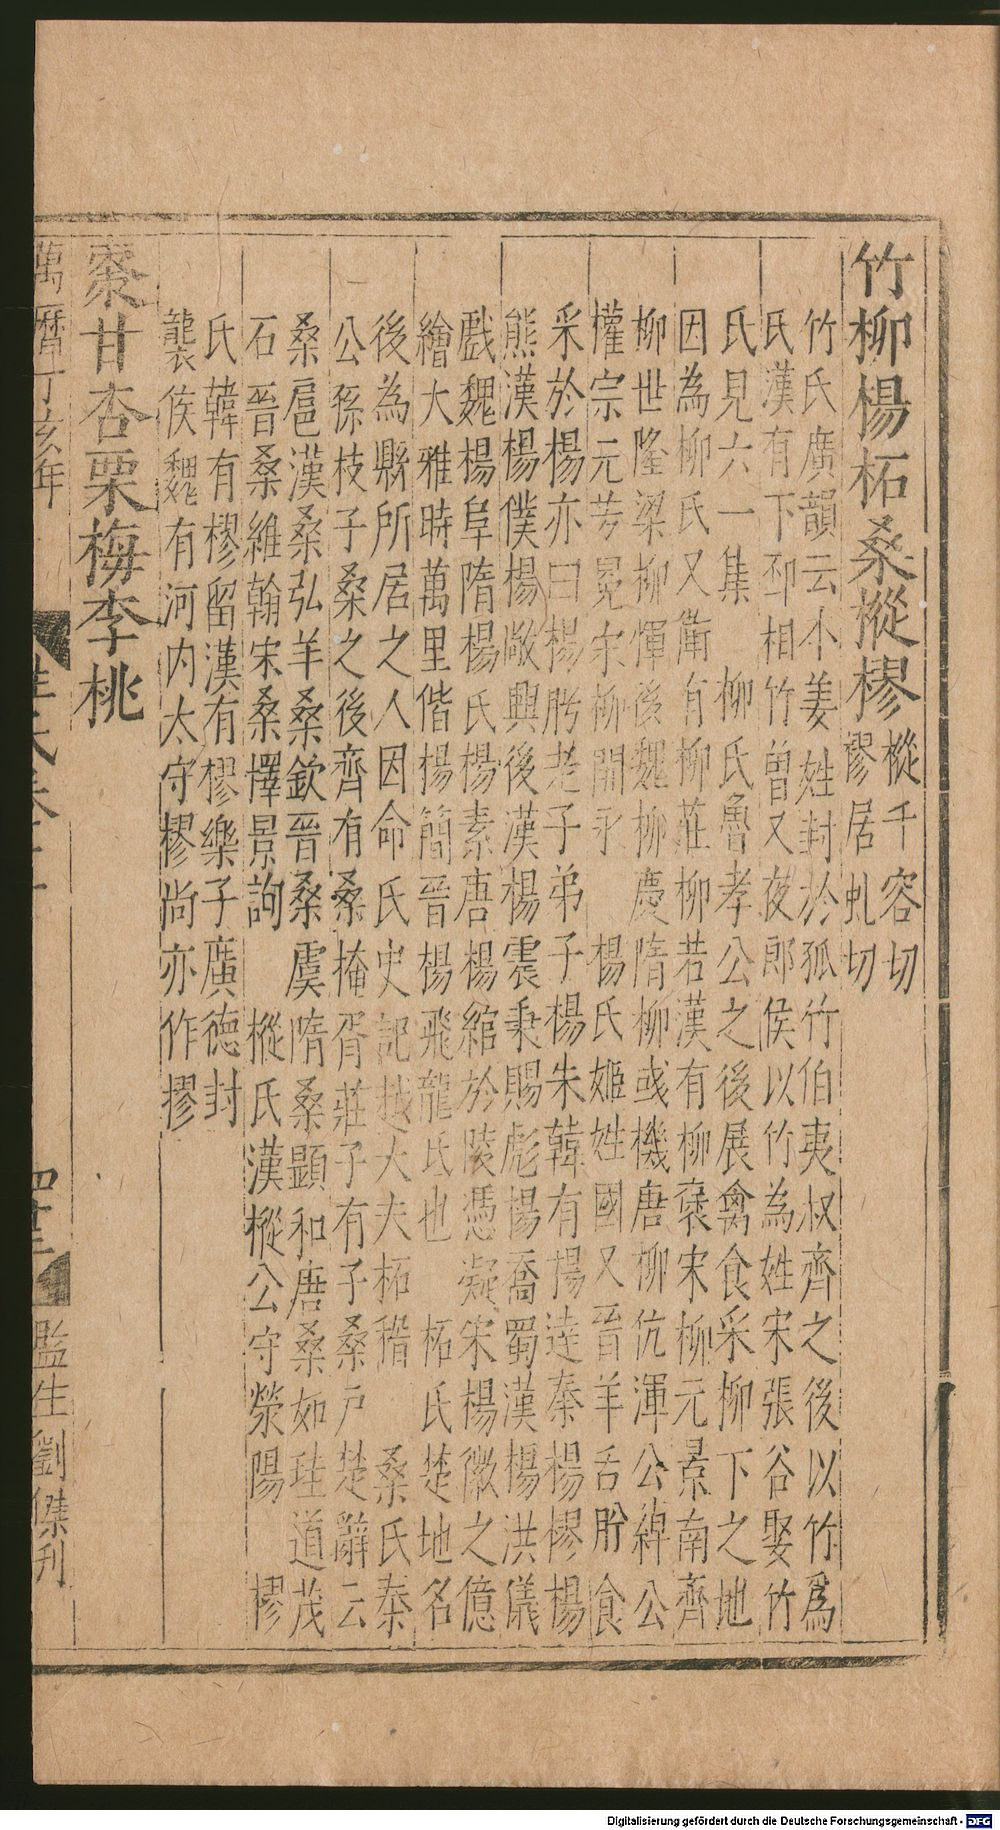 竹柳楊柘桑樅樛樅千容切
樛居虬切
竹氏廣韻云本姜姓封於狐竹伯夷叔齊之後以竹爲
氏漢有下邳相竹曾又夜郎侯以竹為姓宋張谷娶竹
氏見六一集　柳氏魯孝公之後展禽食采柳下之地
因為柳氏又衛有柳莊柳若漢有柳襃宋柳元景南齊
柳世隆梁柳惲後魏柳慶隋柳彧機唐柳伉渾公綽公
權宗元芳冕宋柳開永　楊氏姬姓國又晉羊舌肸食
采於楊亦曰楊肸老子弟子楊朱韓有楊達秦楊樛楊
熊漢楊僕楊敞興後漢楊震秉賜彪楊喬蜀漢楊洪儀
戲魏楊阜隋楊氏楊素唐楊綰於陵憑凝宋楊徽之億
繪大雅時萬里偕楊簡晉楊飛龍氐也　柘氏楚地名
後為縣所居之人因命氏史記越大夫柘稽　桑氏秦
公孫枝子桑之後齊有桑掩胥莊子有子桑戸楚辭云
桑扈漢桑弘羊桑欽晉桑虞隋桑顯和唐桑如珪道茂
石晉桑維翰宋桑擇景詢　樅氏漢樅公守滎陽　樛
氏韓有樛留漢有樛樂子廣德封
龔侯魏有河内太守樛尚亦作摎
棗甘杏栗梅李桃
萬曆丁亥年　姓氏卷　監生劉傑刋
Digitalisierung gefördert durch die Deutsche Forschungsgemeinschaft - DFG